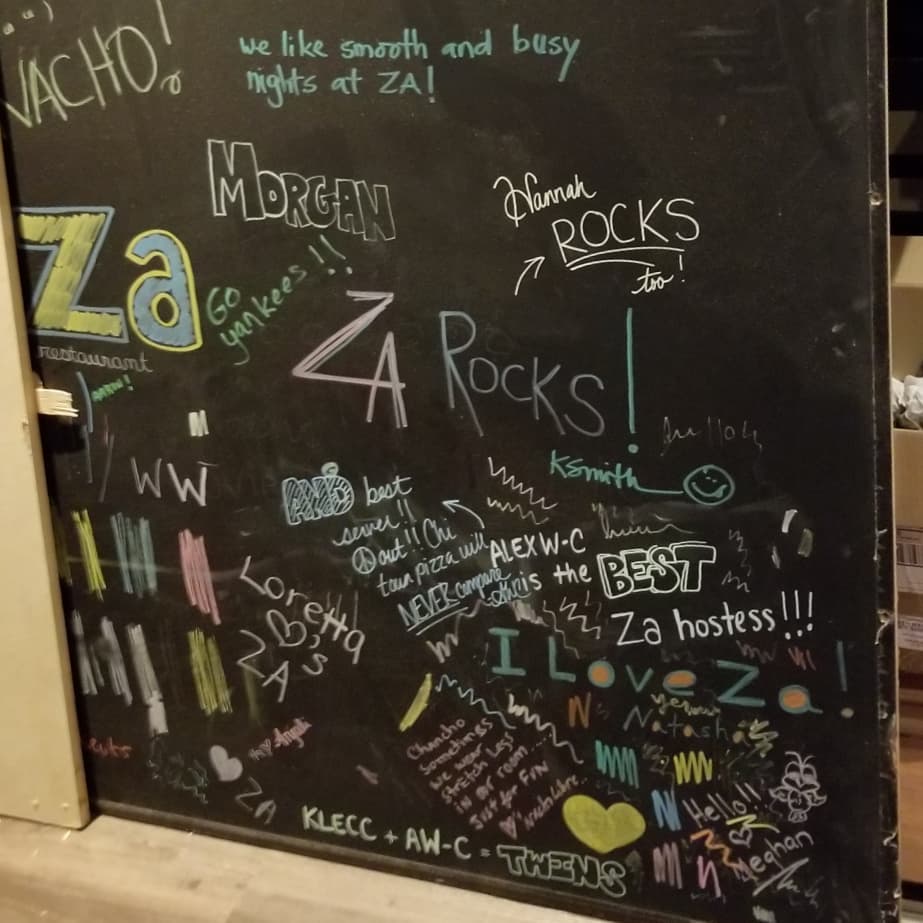 NACHO!
we like smooth and busy
nights at ZA!
MORGAN
Hannah
ROCKS
too!
Za
restaurant
GO
yankees!!
AARON!
ZA ROCKS!
KSmith
WW
AND best
server!!
out!! Chi
town pizza will
NEVER compare
ALEX W-C
is the BEST
Za hostess!!!
Loretta
ZA
I Love Za!
Natasha
Chancho
Sometimes
we wear
stretch
in or room
Just for FUN
Angeli
ZA
Hello!!
Meghan
KLECC + AW-C = TWINS